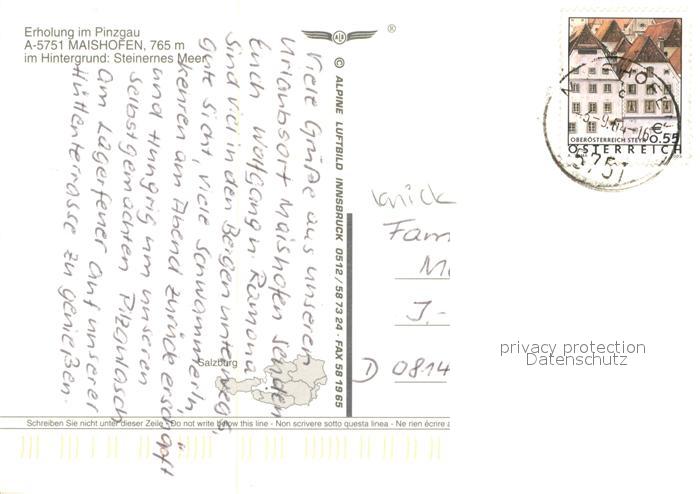 Erholung im Pinzgau
A-5751 MAISHOFEN, 765 m
im Hintergrund: Steinernes Meer
®
© ALPINE LUFTBILD INNSBRUCK 0512 / 58 73 24 · FAX 58 19 65
Viele Grüße aus unseren
Urlaubsort Maishofen senden
Euch Wolfgang u. Ramona
Sind viel in den Bergen unterwegs,
Gute Sicht, viele Schwammerln,
kehren am Abend zurück erschöpft
und Hungrig um unseren
selbstgemachten
am Lagerfeuer auf unserer
Hüttenterrasse zu genießen.
Salzburg
knick
Fam
M
J.-
D 0814
OBERÖSTERREICH STEYR
€ 0.55
ÖSTERREICH
5751
privacy protection
Datenschutz
Schreiben Sie nicht unter dieser Zeile - Do not write below this line - Non scrivere sotto questa linea - Ne rien écrire a